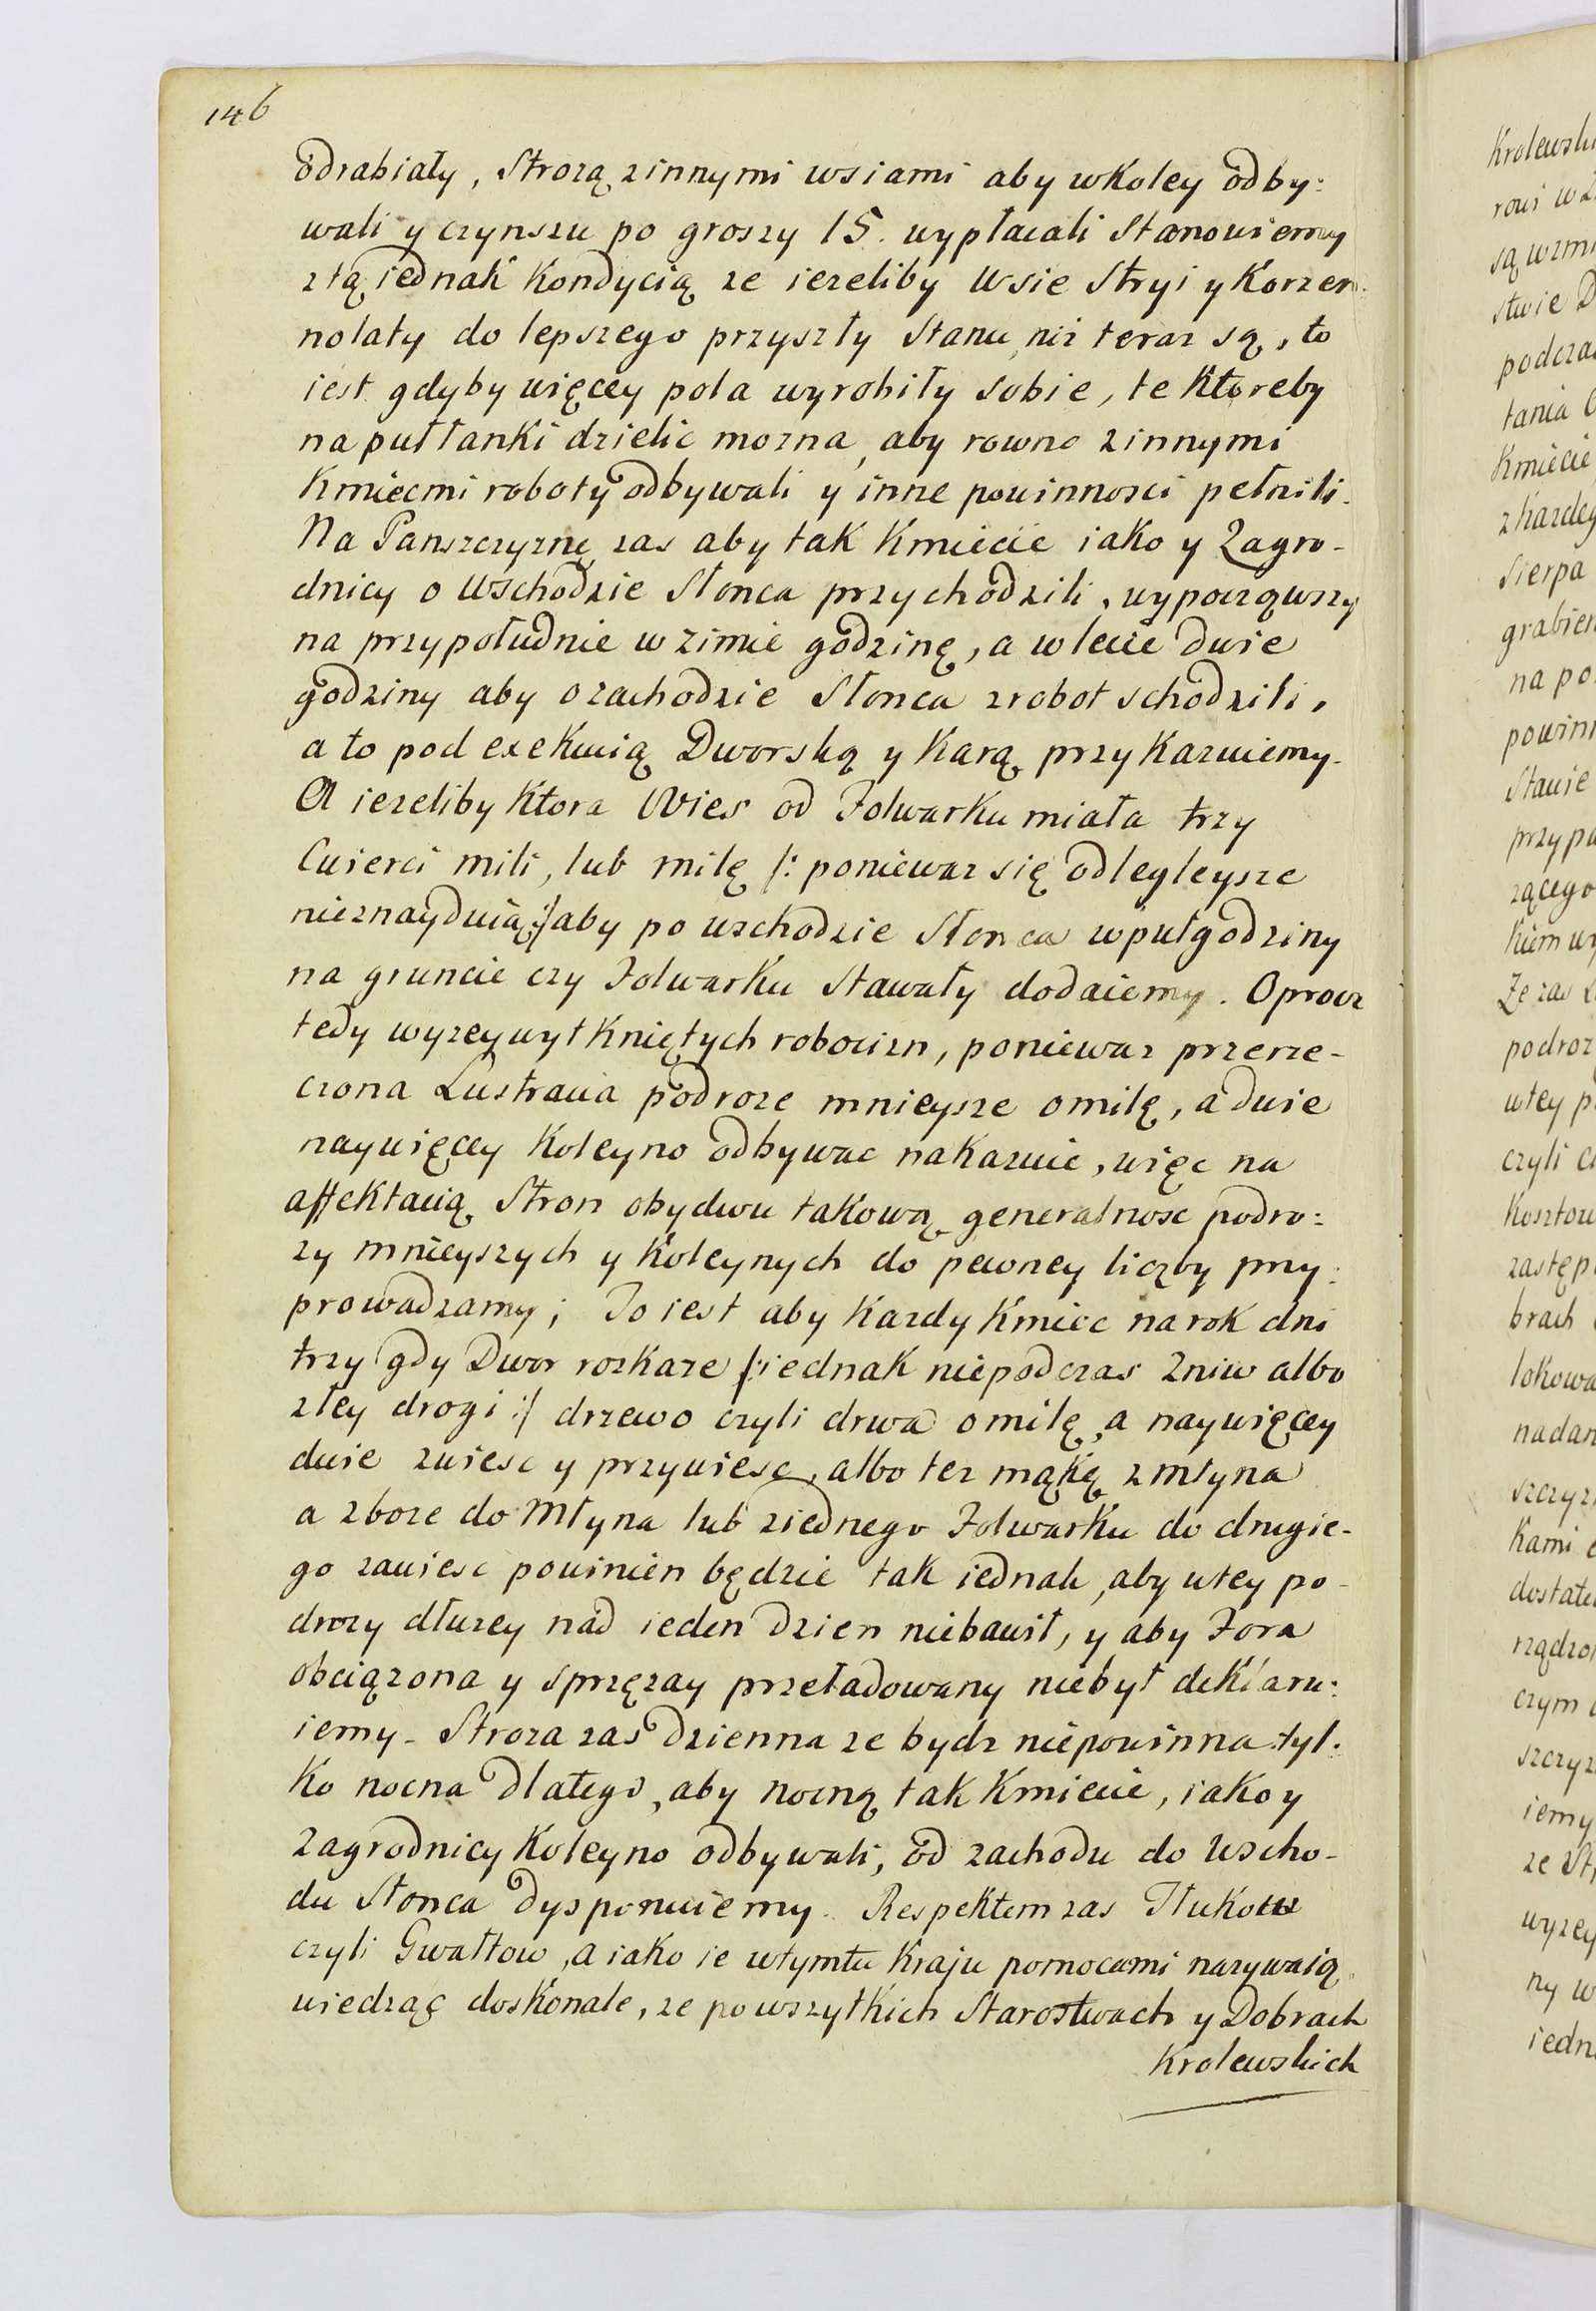 146
odrabiały, Strozą z innymi wsiami aby wkoley odby:
wali y czynszu po groszy 15. wypłacali Stanowiemy
z tą iednak Kondycią ze iezeliby Wsie Stryi y Korzen:
nolaty do lepszego przyszły Stanu, niz teraz są, to
iest gdyby więcey pola wyrobiły sobie, te ktoreby
na pułłanki dzielic mozna, aby rowno z innymi
Kmiecmi roboty odbywali y inne powinnosci pełnili.
Na Panszczyznę zas aby tak Kmiecie iako y Zagro-
dnicy o Wschodzie Słonca przychodzili, wypocząwszy
na przypołudnie w zimie godzinę, a w lecie dwie
godziny aby o zachodzie Słonca z robot schodzili,
a to pod exekucią Dworską y Karą przykazuiemy.
A iezeliby Ktora Wies od Folwarku miała trzy
Cwierci mili, lub milę /: poniewaz się odlegleysze
nieznayduią :/ aby po wschodzie Słonca w puł godziny
na gruncie czy Folwarku Stawały dodaiemy. Oprocz
tedy wyzey wytkniętych robocizn, poniewaz przerze-
czona Lustracia podroze mnieysze o milę, a dwie
naywięcey Koleyno odbywac nakazuie, więc na
affektacią Stron obydwu takową generalnosc podro:
zy mnieyszych y Koleynych do pewney liczby przy:
prowadzamy; To iest aby Kazdy Kmiec na rok dni
trzy gdy Dwor rozkaze /: iednak niepodczas Zniw albo
złey drogi :/ drzewo czyli drwa o milę, a naywięcey
dwie zwiesc y przywiesc, albo tez mąkę z młyna
a zboze do Młyna lub z iednego Folwarku do drugie-
go zawiesc powinien będzie tak iednak, aby w tey po-
drozy dłuzey nad ieden dzien niebawił, y aby Fora
obciązona y sprzęzay przeładowany niebył deklaru:
iemy. Stroza zas dzienna ze bydz niepowinna tyl:
Ko nocna dlatego, aby nocną tak Kmiecie, iako y
Zagrodnicy Koleyno odbywali, od zachodu do Wscho-
du Słonca dysponuiemy. Respektem zas Tłukow
czyli Gwałtow, a iako ie w tymtu Kraju pomocami nazywaią
wiedząc doskonale, ze po wszytkich Starostwach y Dobrach
Krolewskich